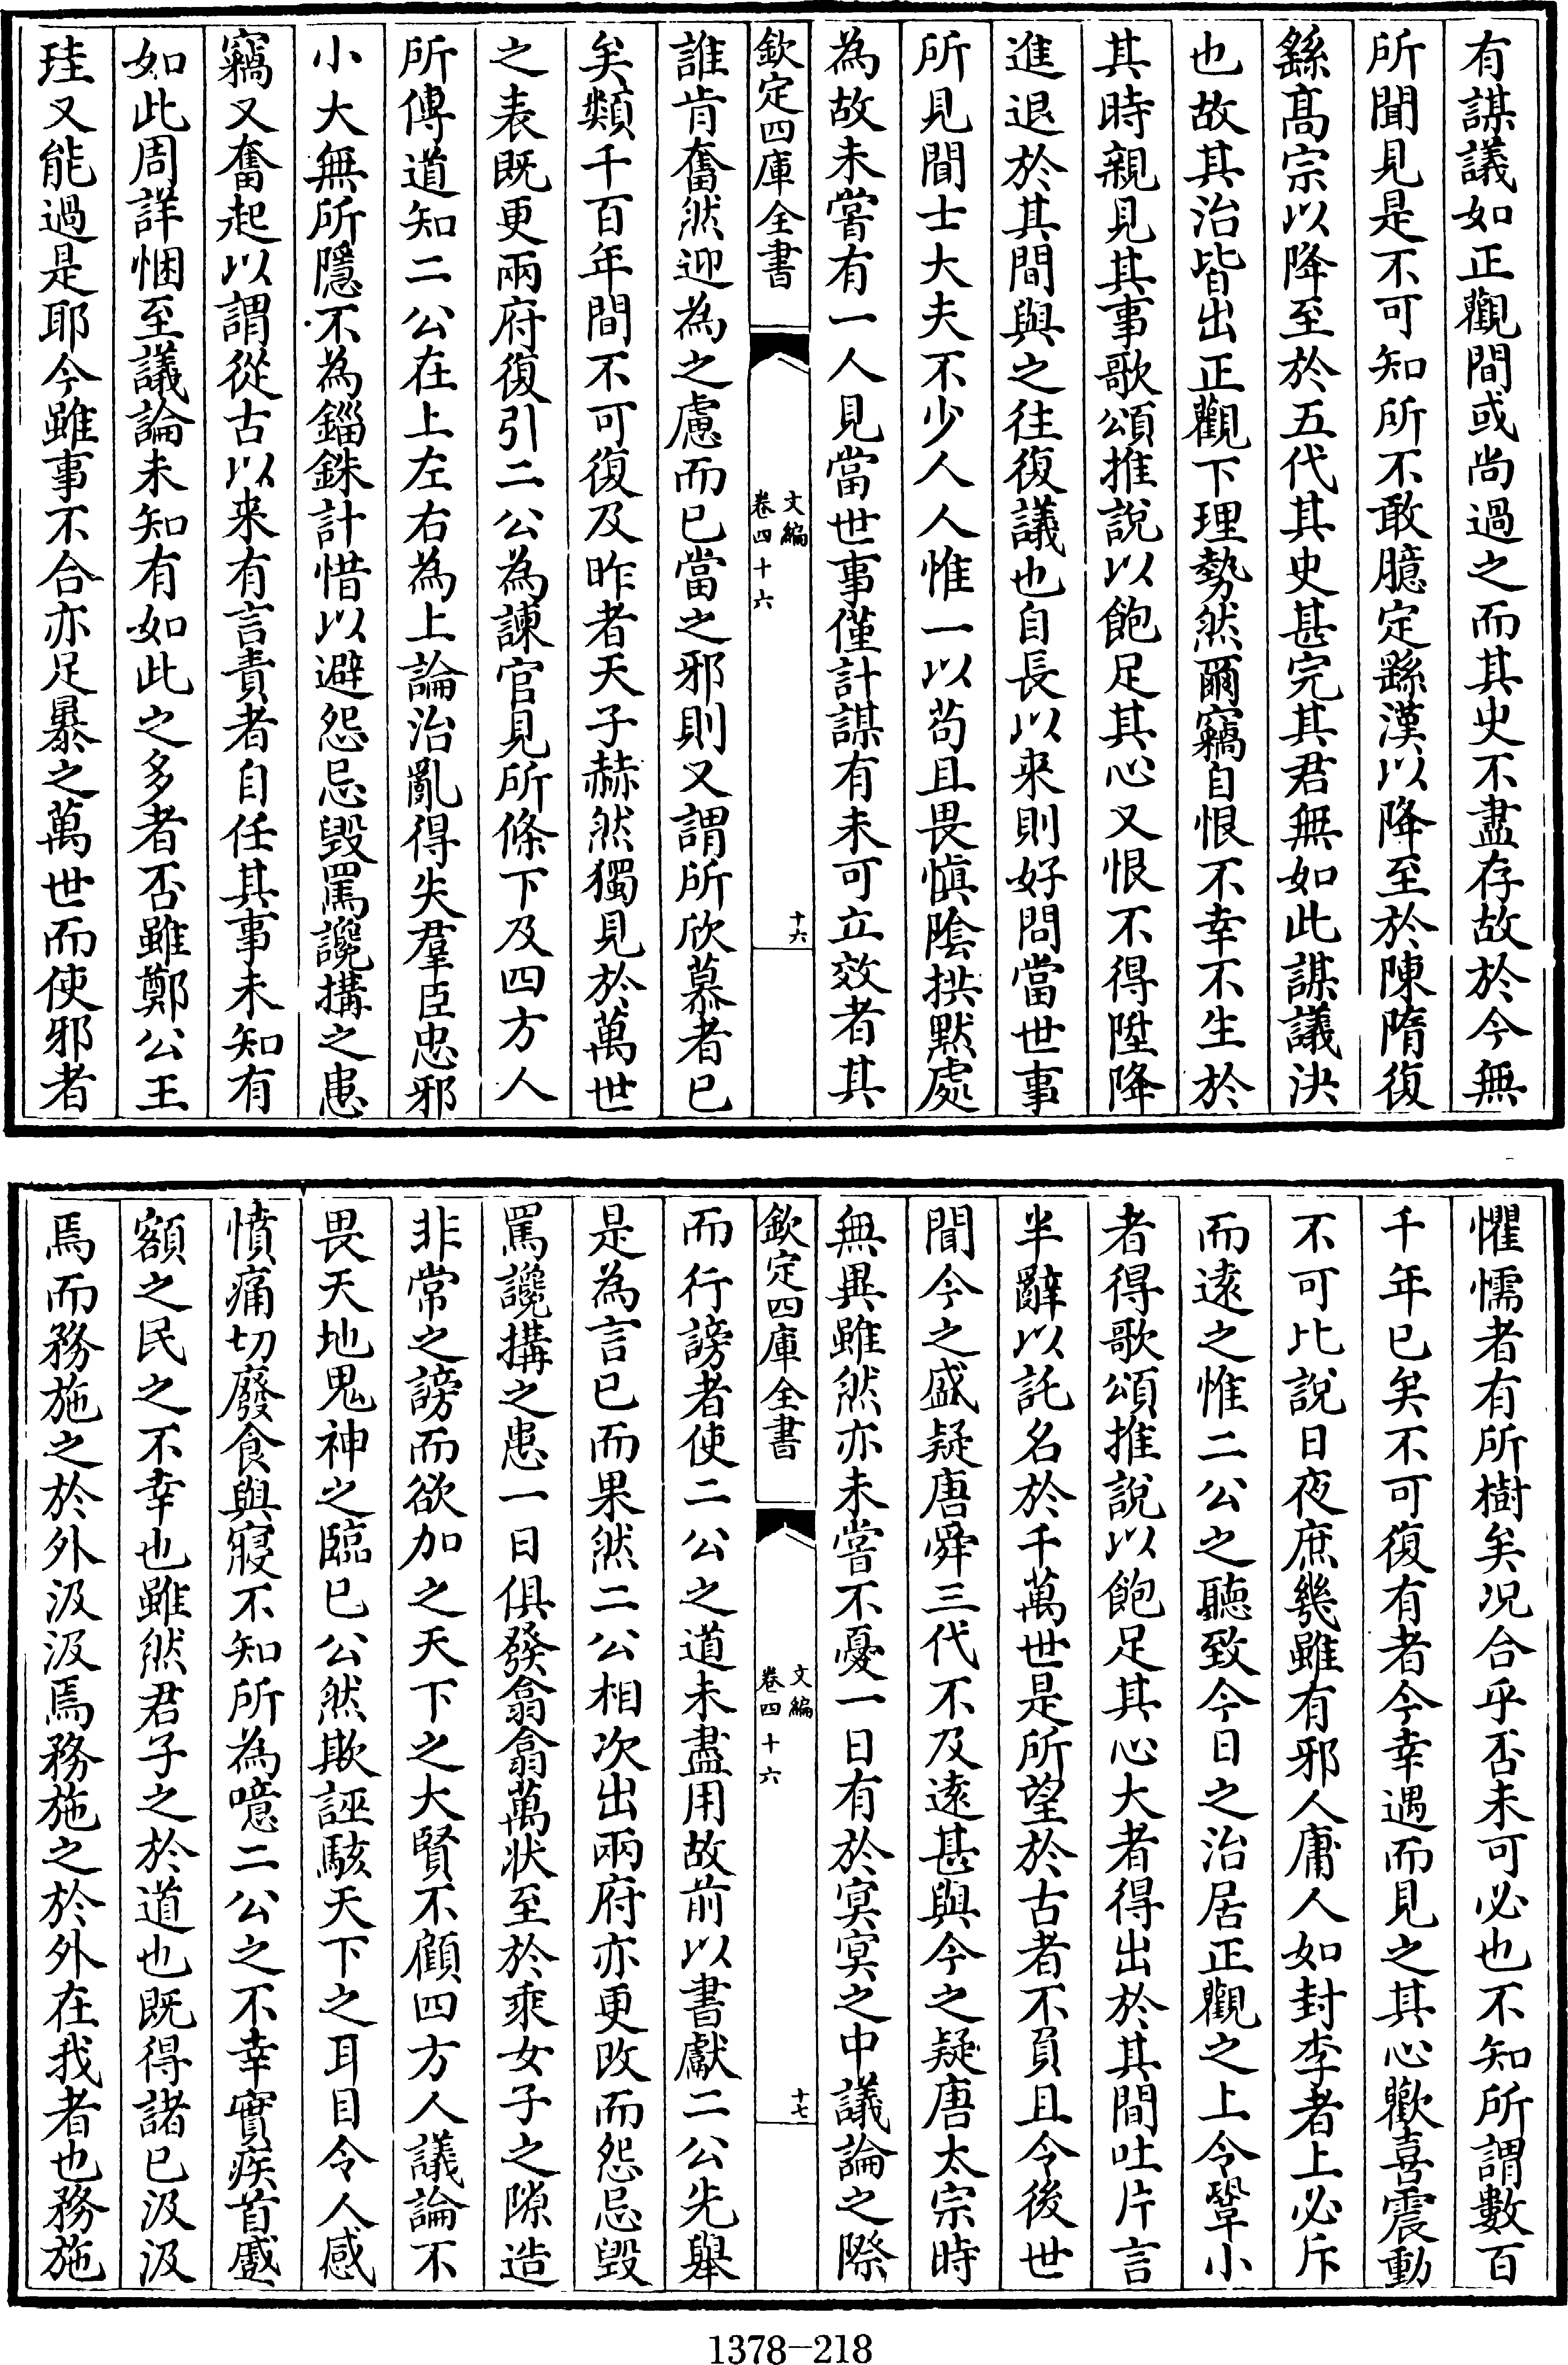 有謀議如正觀間或尚過之而其史不盡存故於今無
所聞見是不可知所不敢臆定繇漢以降至於陳隋復
繇髙宗以降至於五代其史甚完其君無如此謀議決
也故其治皆出正觀下理勢然爾竊自恨不幸不生於
其時親見其事歌頌推說以飽足其心又恨不得陞降
進退於其間與之往復議也自長以来則好問當世事
所見聞士大夫不少人人惟一以苟且畏慎陰拱黙處
為故未嘗有一人見當世事僅計謀有未可立效者其
欽定四庫全書
文編
卷四十六
十六
誰肯奮然迎為之慮而已當之邪則又謂所欣慕者已
矣類千百年間不可復及昨者天子赫然獨見於萬世
之表既更兩府復引二公為諫官見所條下及四方人
所傳道知二公在上左右為上論治亂得失羣臣忠邪
小大無所隱不為錙銖計惜以避怨忌毁罵讒搆之患
竊又奮起以謂從古以来有言責者自任其事未知有
如此周詳悃至議論未知有如此之多者否雖鄭公王
珪又能過是耶今雖事不合亦足暴之萬世而使邪者
懼懦者有所樹矣况合乎否未可必也不知所謂數百
千年已矣不可復有者今幸遇而見之其心歡喜震動
不可比說日夜庶幾雖有邪人庸人如封李者上必斥
而逺之惟二公之聽致今日之治居正觀之上令鞏小
者得歌頌推說以飽足其心大者得出於其間吐片言
半辭以託名於千萬世是所望於古者不負且令後世
聞今之盛疑唐舜三代不及逺甚與今之疑唐太宗時
無異雖然亦未嘗不憂一日有於冥冥之中議論之際
欽定四庫全書
文編
卷四十六
十七
而行謗者使二公之道未盡用故前以書獻二公先舉
是為言已而果然二公相次出兩府亦更改而怨忌毁
罵讒搆之患一日俱發翕翕萬状至於乘女子之隙造
非常之謗而欲加之天下之大賢不顧四方人議論不
畏天地鬼神之臨已公然欺誣駭天下之耳目令人感
憤痛切廢食與寢不知所為噫二公之不幸實疾首蹙
額之民之不幸也雖然君子之於道也既得諸已汲汲
焉而務施之於外汲汲焉務施之於外在我者也務施
1378-218